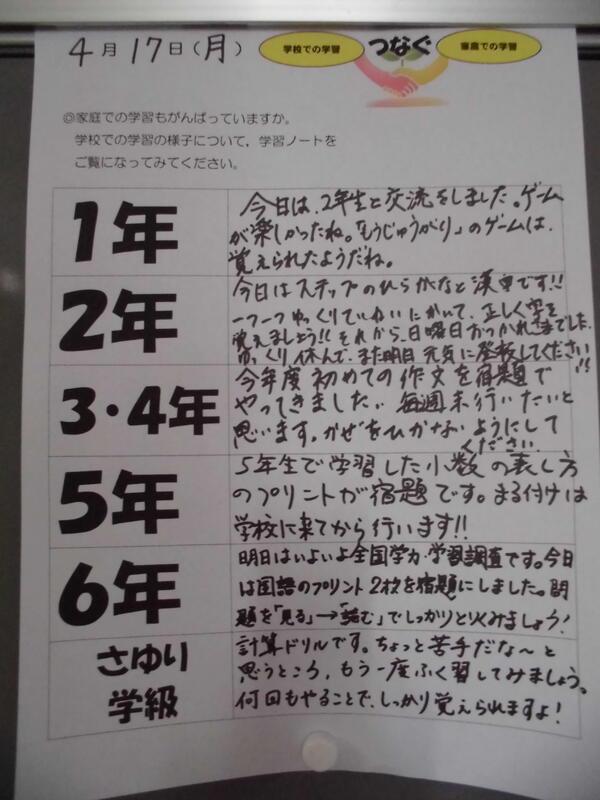 4月17日(月)
学校での学習
つなぐ
家庭での学習
◎家庭での学習もがんばっていますか。
学校での学習の様子について,学習ノートを
ご覧になってみてください。
1年
今日は、2年生と交流をしました。ゲーム
が楽しかったね。「もうじゅうがり」のゲームは、
覚えられたようだね。
2年
今日はステップのひらがなと漢字です!!
一つ一つゆっくりていねいにかいて、正しく字を
覚えましょう!!それから、日曜日おつかれさまでした。
ゆっくり休んで、また明日元気に登校してください!!
3・4年
今年度初めての作文を宿題で
やってきました。毎週末行いたいと
思います。かぜをひかないようにして
ください。
5年
5年生で学習した小数の表し方
のプリントが宿題です。まる付けは
学校に来てから行います!!
6年
明日はいよいよ全国学力・学習調査です。今日
は国語のプリント2枚を宿題にしました。問
題を「見る」→「読む」でしっかりと火みましょう!
さゆり
学級
計算ドリルです。ちょっと苦手だな〜と
思うところ、もう一度ふく習してみましょう。
何回もやることで、しっかり覚えられますよ!